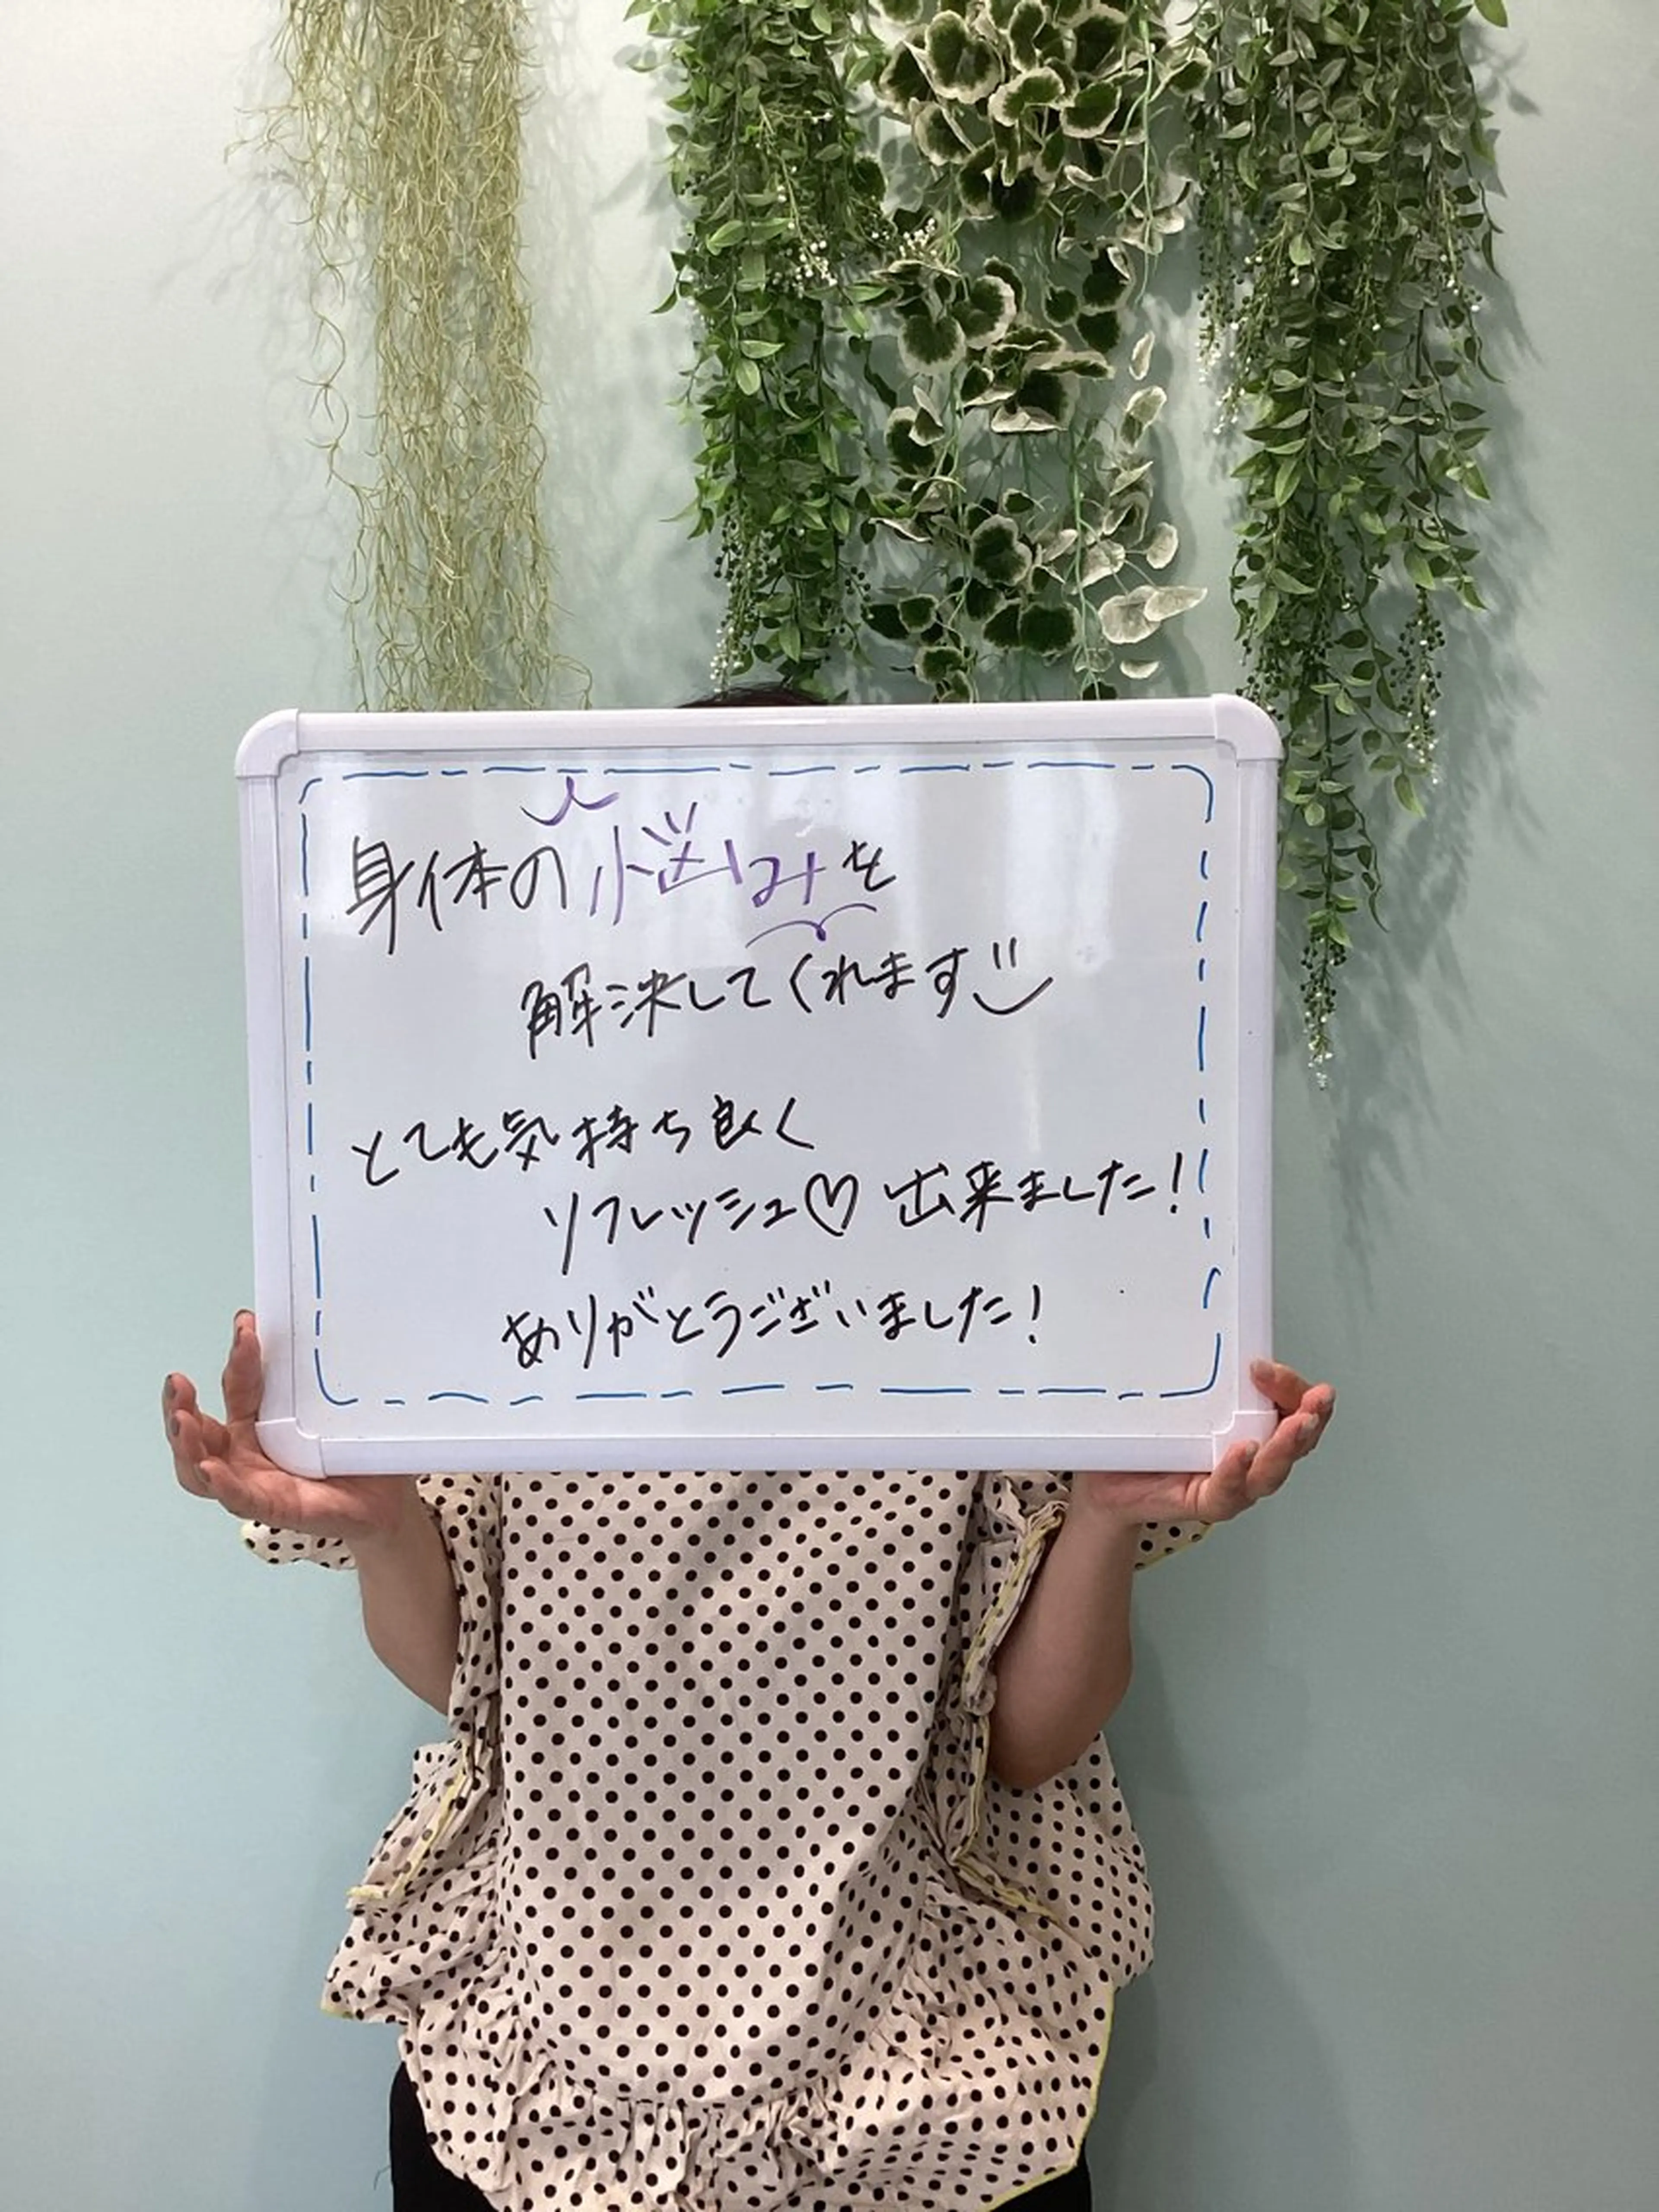 身体の悩みを
解決してくれます
とても気持ち良く
リフレッシュ♡出来ました！
ありがとうございました！